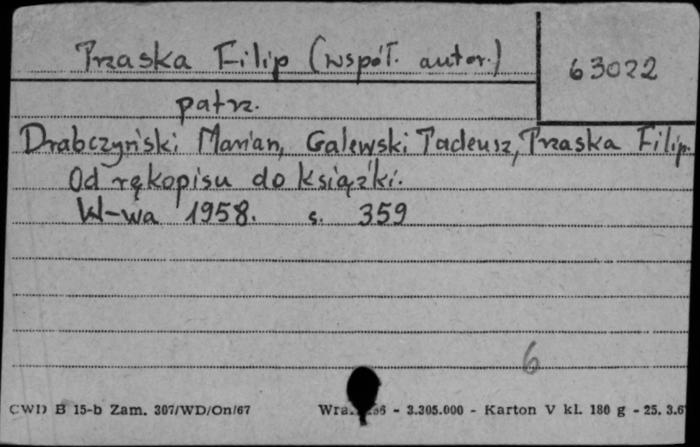 Trzaska Filip (współ. autor.)
63022
patrz.
Drabczyński Marian, Galewski Tadeusz, Trzaska Filip.
Od rękopisu do książki.
W-wa 1958. s. 359
6
CWD B 15-b Zam. 307/WD/On/67
- 3.305.000 - Karton V kl. 180 g - 25. 3.6